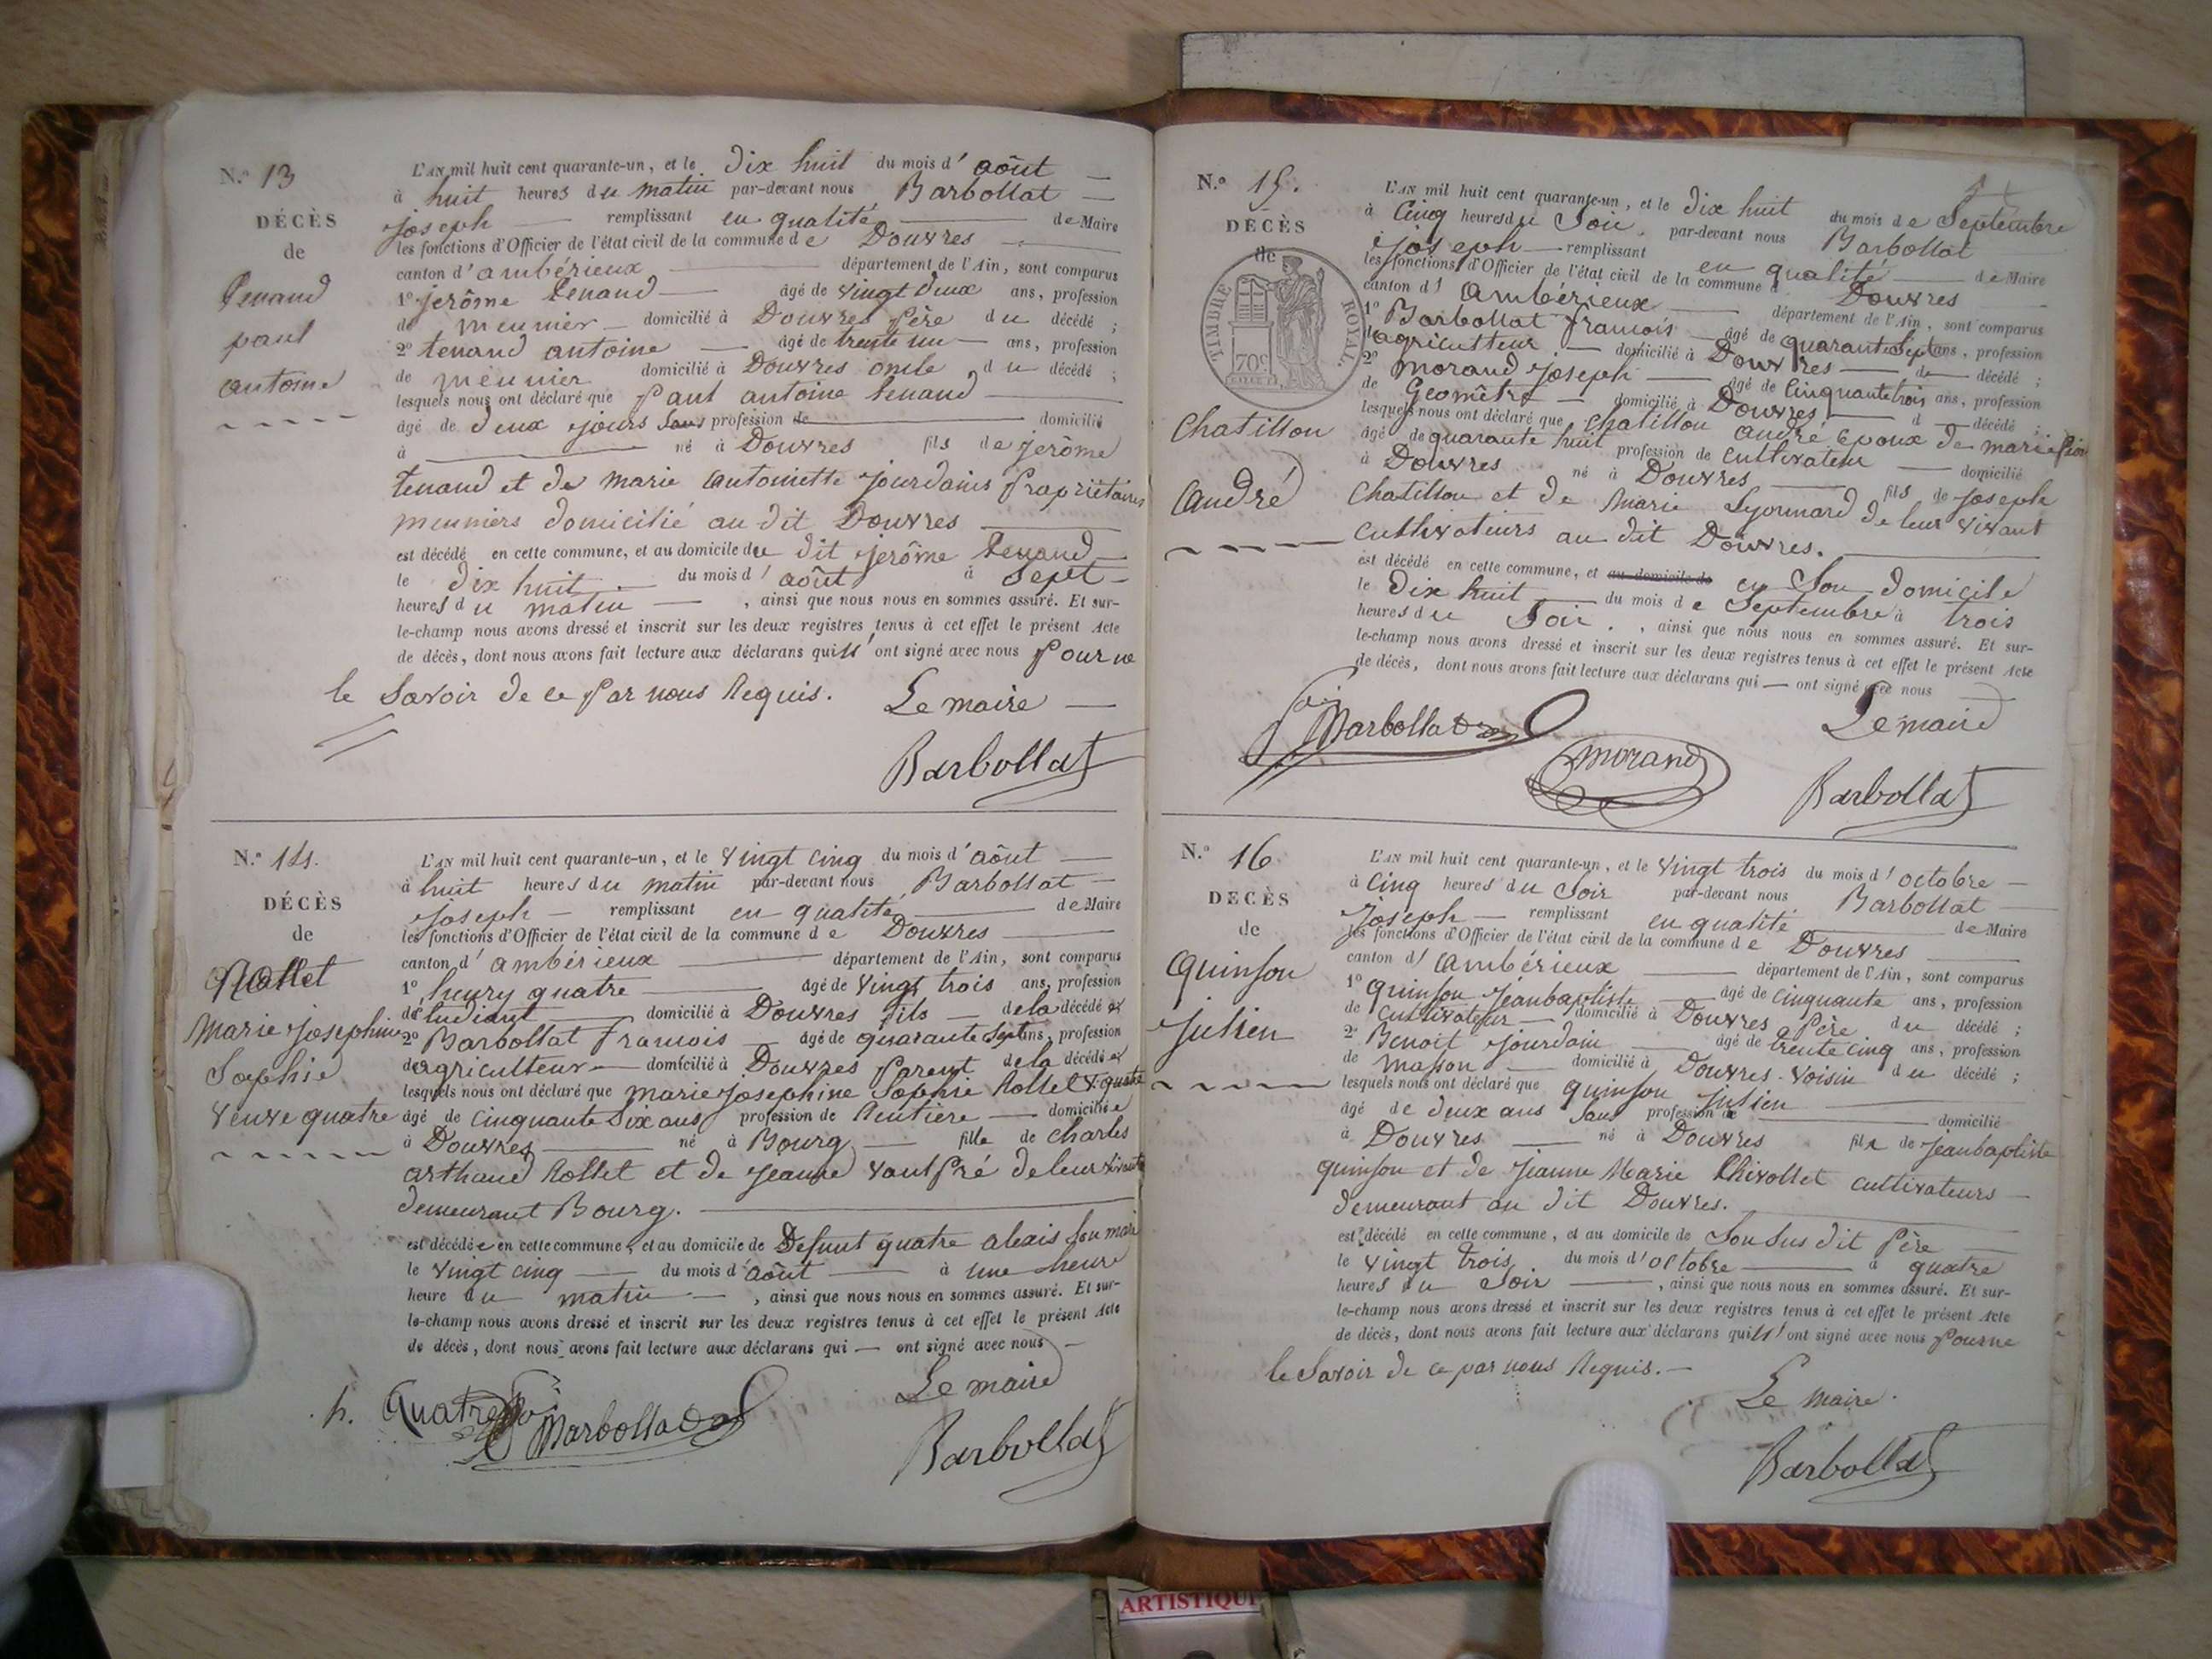 N.° 13
DÉCÈS
de
tenand
paul
antoine
L'AN mil huit cent quarante-un, et le dix huit du mois d'août
à huit heures du matin par-devant nous Barbollat
joseph remplissant en qualité de Maire
les fonctions d'Officier de l'état civil de la commune de Douvres
canton d'ambérieux département de l'Ain, sont comparus
1° jerôme tenand âgé de vingt deux ans, profession
de meunier domicilié à Douvres Père du décédé ;
2° tenand antoine âgé de trente un ans, profession
de meunier domicilié à Douvres oncle du décédé ;
lesquels nous ont déclaré que Paul antoine tenand
âgé de deux jours sans profession de domicilié
à né à Douvres fils de jerôme
tenand et de marie antoinette jourdain Propriétaires
meuniers domicilié au dit Douvres
est décédé en cette commune, et au domicile du dit jerôme tenand
le dix huit du mois d'août à sept
heures du matin, ainsi que nous nous en sommes assuré. Et sur-
le-champ nous avons dressé et inscrit sur les deux registres tenus à cet effet le présent Acte
de décès, dont nous avons fait lecture aux déclarans qui n'ont signé avec nous Pour ne
le Savoir de ce Par nous Requis. Le maire
Barbollat
N.° 14.
DÉCÈS
de
Rollet
Marie Josephine
Sophie
veuve quatre
L'AN mil huit cent quarante-un, et le vingt cinq du mois d'août
à huit heures du matin par-devant nous Barbollat
joseph remplissant en qualité de Maire
les fonctions d'Officier de l'état civil de la commune de Douvres
canton d'ambérieux département de l'Ain, sont comparus
1° henry quatre âgé de vingt trois ans, profession
d'étudiant domicilié à Douvres fils de la décédé
2° Barbollat francois âgé de quarante sept ans, profession
d'agriculteur domicilié à Douvres Parent de la décédé
lesquels nous ont déclaré que marie josephine Sophie Rollet Ve quatre
âgé de cinquante six ans profession de Rentière domicilié
à Douvres né à Bourg fille de charles
arthaud Rollet et de jeanne vautpré de leur vivant
demeurant Bourg.
est décédée en cette commune, et au domicile de Defunt quatre alexis son mari
le vingt cinq du mois d'août à une heure
heure du matin, ainsi que nous nous en sommes assuré. Et sur-
le-champ nous avons dressé et inscrit sur les deux registres tenus à cet effet le présent Acte
de décès, dont nous avons fait lecture aux déclarans qui ont signé avec nous
Le maire
h. Quatre Barbollat
Barbollat
N.° 15.
DÉCÈS
de
TIMBRE ROYAL
70c
Chatillon
André
L'AN mil huit cent quarante-un, et le dix huit du mois de Septembre
à Cinq heures du Soir, par-devant nous Barbollat
joseph remplissant en qualité de Maire
les fonctions d'Officier de l'état civil de la commune d Douvres
canton d'ambérieux département de l'Ain, sont comparus
1° Barbollat francois âgé de quarante sept ans, profession
d'agriculteur domicilié à Douvres de décédé ;
2° morand joseph âgé de Cinquante trois ans, profession
de Geomêtre domicilié à Douvres d décédé ;
lesquels nous ont déclaré que chatillon andré Epoux de marie
âgé de quarante huit profession de cultivateur domicilié
à Douvres né à Douvres fils de joseph
Chatillon et de Marie Lyonnard de leur vivant
cultivateurs au dit Douvres.
est décédé en cette commune, et au domicile de en Son domicile
le dix huit du mois de Septembre à trois
heures du Soir., ainsi que nous nous en sommes assuré. Et sur-
le-champ nous avons dressé et inscrit sur les deux registres tenus à cet effet le présent Acte
de décès, dont nous avons fait lecture aux déclarans qui ont signé avec nous
Barbollat Le maire
morand Barbollat
N.° 16
DÉCÈS
de
Quinson
Julien
L'AN mil huit cent quarante-un, et le vingt trois du mois d'octobre
à Cinq heures du Soir par-devant nous Barbollat
Joseph remplissant en qualité de Maire
les fonctions d'Officier de l'état civil de la commune de Douvres
canton d'ambérieux département de l'Ain, sont comparus
1° quinson jeanbaptiste âgé de cinquante ans, profession
de Cultivateur domicilié à Douvres Père du décédé ;
2° Benoit jourdain âgé de trente cinq ans, profession
de masson domicilié à Douvres voisin du décédé ;
lesquels nous ont déclaré que quinson julien
âgé de deux ans sans profession de domicilié
à Douvres né à Douvres fils de jeanbaptiste
quinson et de jeanne Marie Chivollet cultivateurs
demeurant au dit Douvres.
est décédé en cette commune, et au domicile de Son Sus dit Père
le vingt trois du mois d'octobre à quatre
heures du Soir, ainsi que nous nous en sommes assuré. Et sur-
le-champ nous avons dressé et inscrit sur les deux registres tenus à cet effet le présent Acte
de décès, dont nous avons fait lecture aux déclarans qui n'ont signé avec nous Pour ne
le Savoir de ce par nous Requis.
Le maire.
Barbollat
ARTISTIQUE